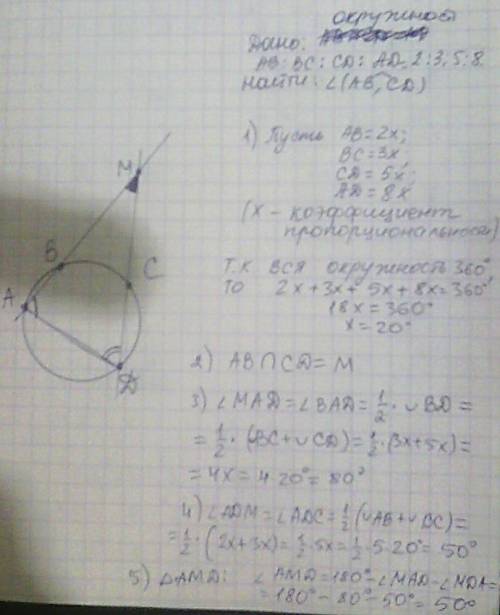 окружност
Дано:
AB: BC: CD: AD 2:3,5:8.
найти: ∠(AB, CD)
1) Пусть AB=2x;
BC=3x,
CD=5x;
AD=8x
(x - коэффициент
пропорциональности)
Т.К ВСЯ окружность 360°
ТО 2x+3x+5x+8x=360°
18x=360°
x=20°
2) AB∩CD=M
3) ∠MAD=∠BAD=1/2·∪BD=
=1/2·(∪BC+∪CD)=1/2·(3x+5x)=
=4x=4·20°=80°
4) ∠ADM=∠ADC=1/2(∪AB+∪BC)=
=1/2·(2x+3x)=1/2·5x=1/2·5·20°=50°
5) △AMD: ∠AMD=180°-∠MAD-∠MDA=
=180°-80°-50°=50°
M
B
C
A
D